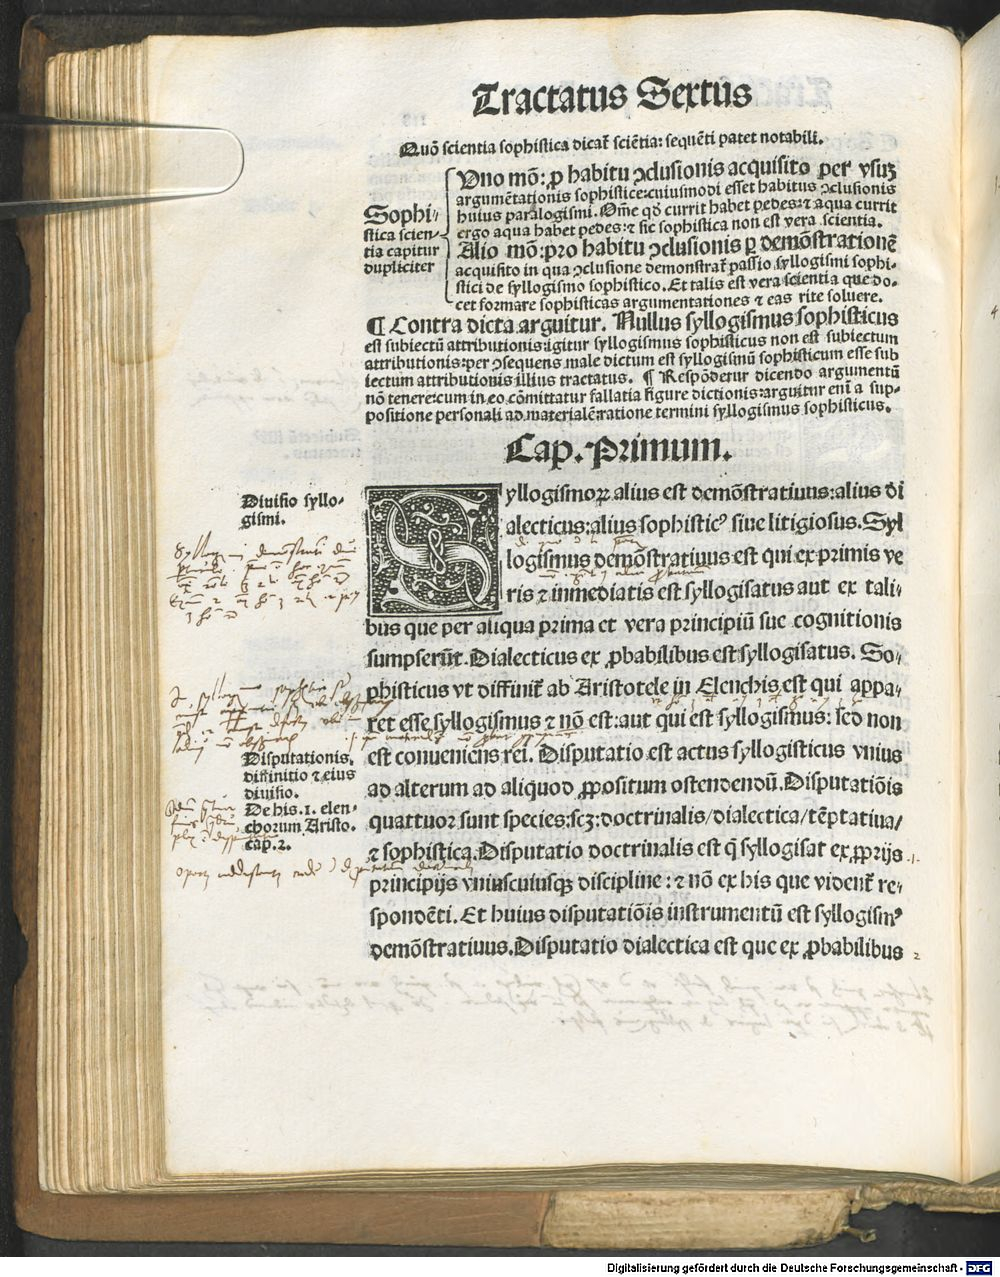 Tractatus Sextus
Quō scientia sophistica dicat̄ sciētia: sequēti patet notabili.
Sophi-
stica scien-
tia capitur
dupliciter
Vno mō: ꝓ habitu ↄclusionis acquisito per vsuꝫ
argumētationis sophistice: cuiusmodi esset habitus ↄclusionis
huius paralogismi. Om̄e qd̄ currit habet pedes: ⁊ aqua currit
ergo aqua habet pedes: ⁊ sic sophistica non est vera scientia.
Alio mō: pro habitu ↄclusionis ꝑ demōstrationē
acquisito in qua ↄclusione demonstrat̄ passio syllogismi sophi-
stici de syllogismo sophistico. Et talis est vera scientia que do-
cet formare sophisticas argumentationes ⁊ eas rite soluere.
¶ Contra dicta arguitur. Nullus syllogismus sophisticus
est subiectū attributionis: igitur syllogismus sophisticus non est subiectum
attributionis: per ↄsequens male dictum est syllogismū sophisticum esse sub
iectum attributionis illius tractatus. ¶ Respōdetur dicendo argumentū
nō tenere: cum in eo cōmittatur fallatia figure dictionis: arguitur enī a sup-
positione personali ad materialē: ratione termini syllogismus sophisticus.
Cap. Primum.
Diuisio syllo-
gismi.
Syllogismoꝝ alius est demōstratiuus: alius di
alecticus: alius sophisticꝰ siue litigiosus. Syl
logismus demōstratiuus est qui ex primis ve
ris ⁊ inmediatis est syllogisatus aut ex tali-
bus que per aliqua prima et vera principiū sue cognitionis
sumpserūt. Dialecticus ex ꝓbabilibus est syllogisatus. So-
phisticus vt diffinit̄ ab Aristotele in Elenchis est qui appa-
ret esse syllogismus ⁊ nō est: aut qui est syllogismus: sed non
est conueniens rei. Disputatio est actus syllogisticus vnius
ad alterum ad aliquod ꝓpositum ostendendū. Disputatiōis
quattuor sunt species: scꝫ: doctrinalis/ dialectica/ tēptatiua/
⁊ sophistica. Disputatio doctrinalis est q̄ syllogisat ex ꝓprijs
principijs vniuscuiusqꝫ discipline: ⁊ nō ex his que vident̄ re-
spondēti. Et huius disputatiōis instrumentū est syllogismꝰ
demōstratiuus. Disputatio dialectica est que ex ꝓbabilibus
Disputationis
diffinitio ⁊ eius
diuisio.
De his. 1. elen-
chorum Aristo.
cap. 2.
.1.
2
Digitalisierung gefördert durch die Deutsche Forschungsgemeinschaft - DFG